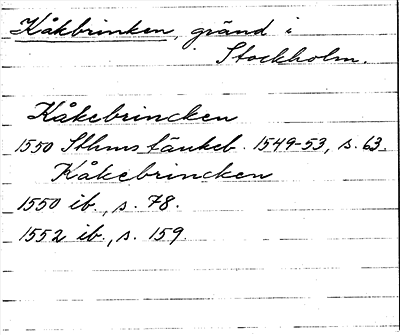 Kåkbrinken, gränd i
Stockholm.
Kåkebrincken
1550 Sthms tänkeb. 1549-53, s. 63.
Kåkebrincken
1550 ib., s. 78.
1552 ib., s. 159.